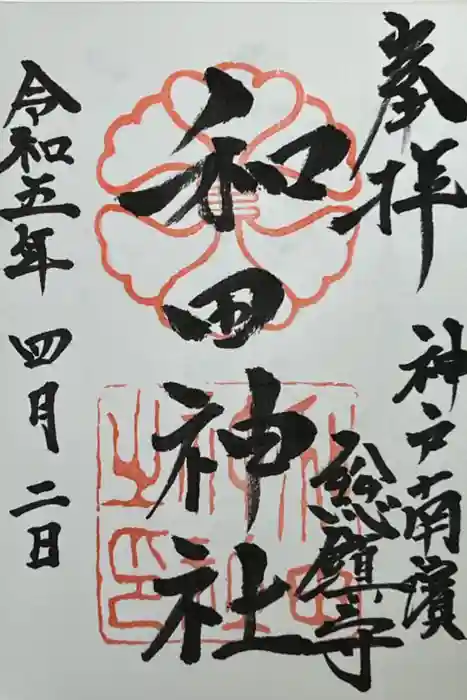 奉拝
神戸南濱
総鎮守
和田神社
令和五年四月二日